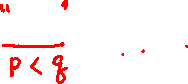 "
p < q . . .